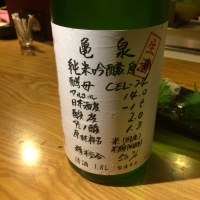 亀泉
生酒
純米吟醸原酒
酵母 CEL-24
アルコール 14.0
日本酒度 -11
酸度 2.0
アミノ酸 1.3
原材料名 米(国産)
精米歩合 50%
清酒 1.8L